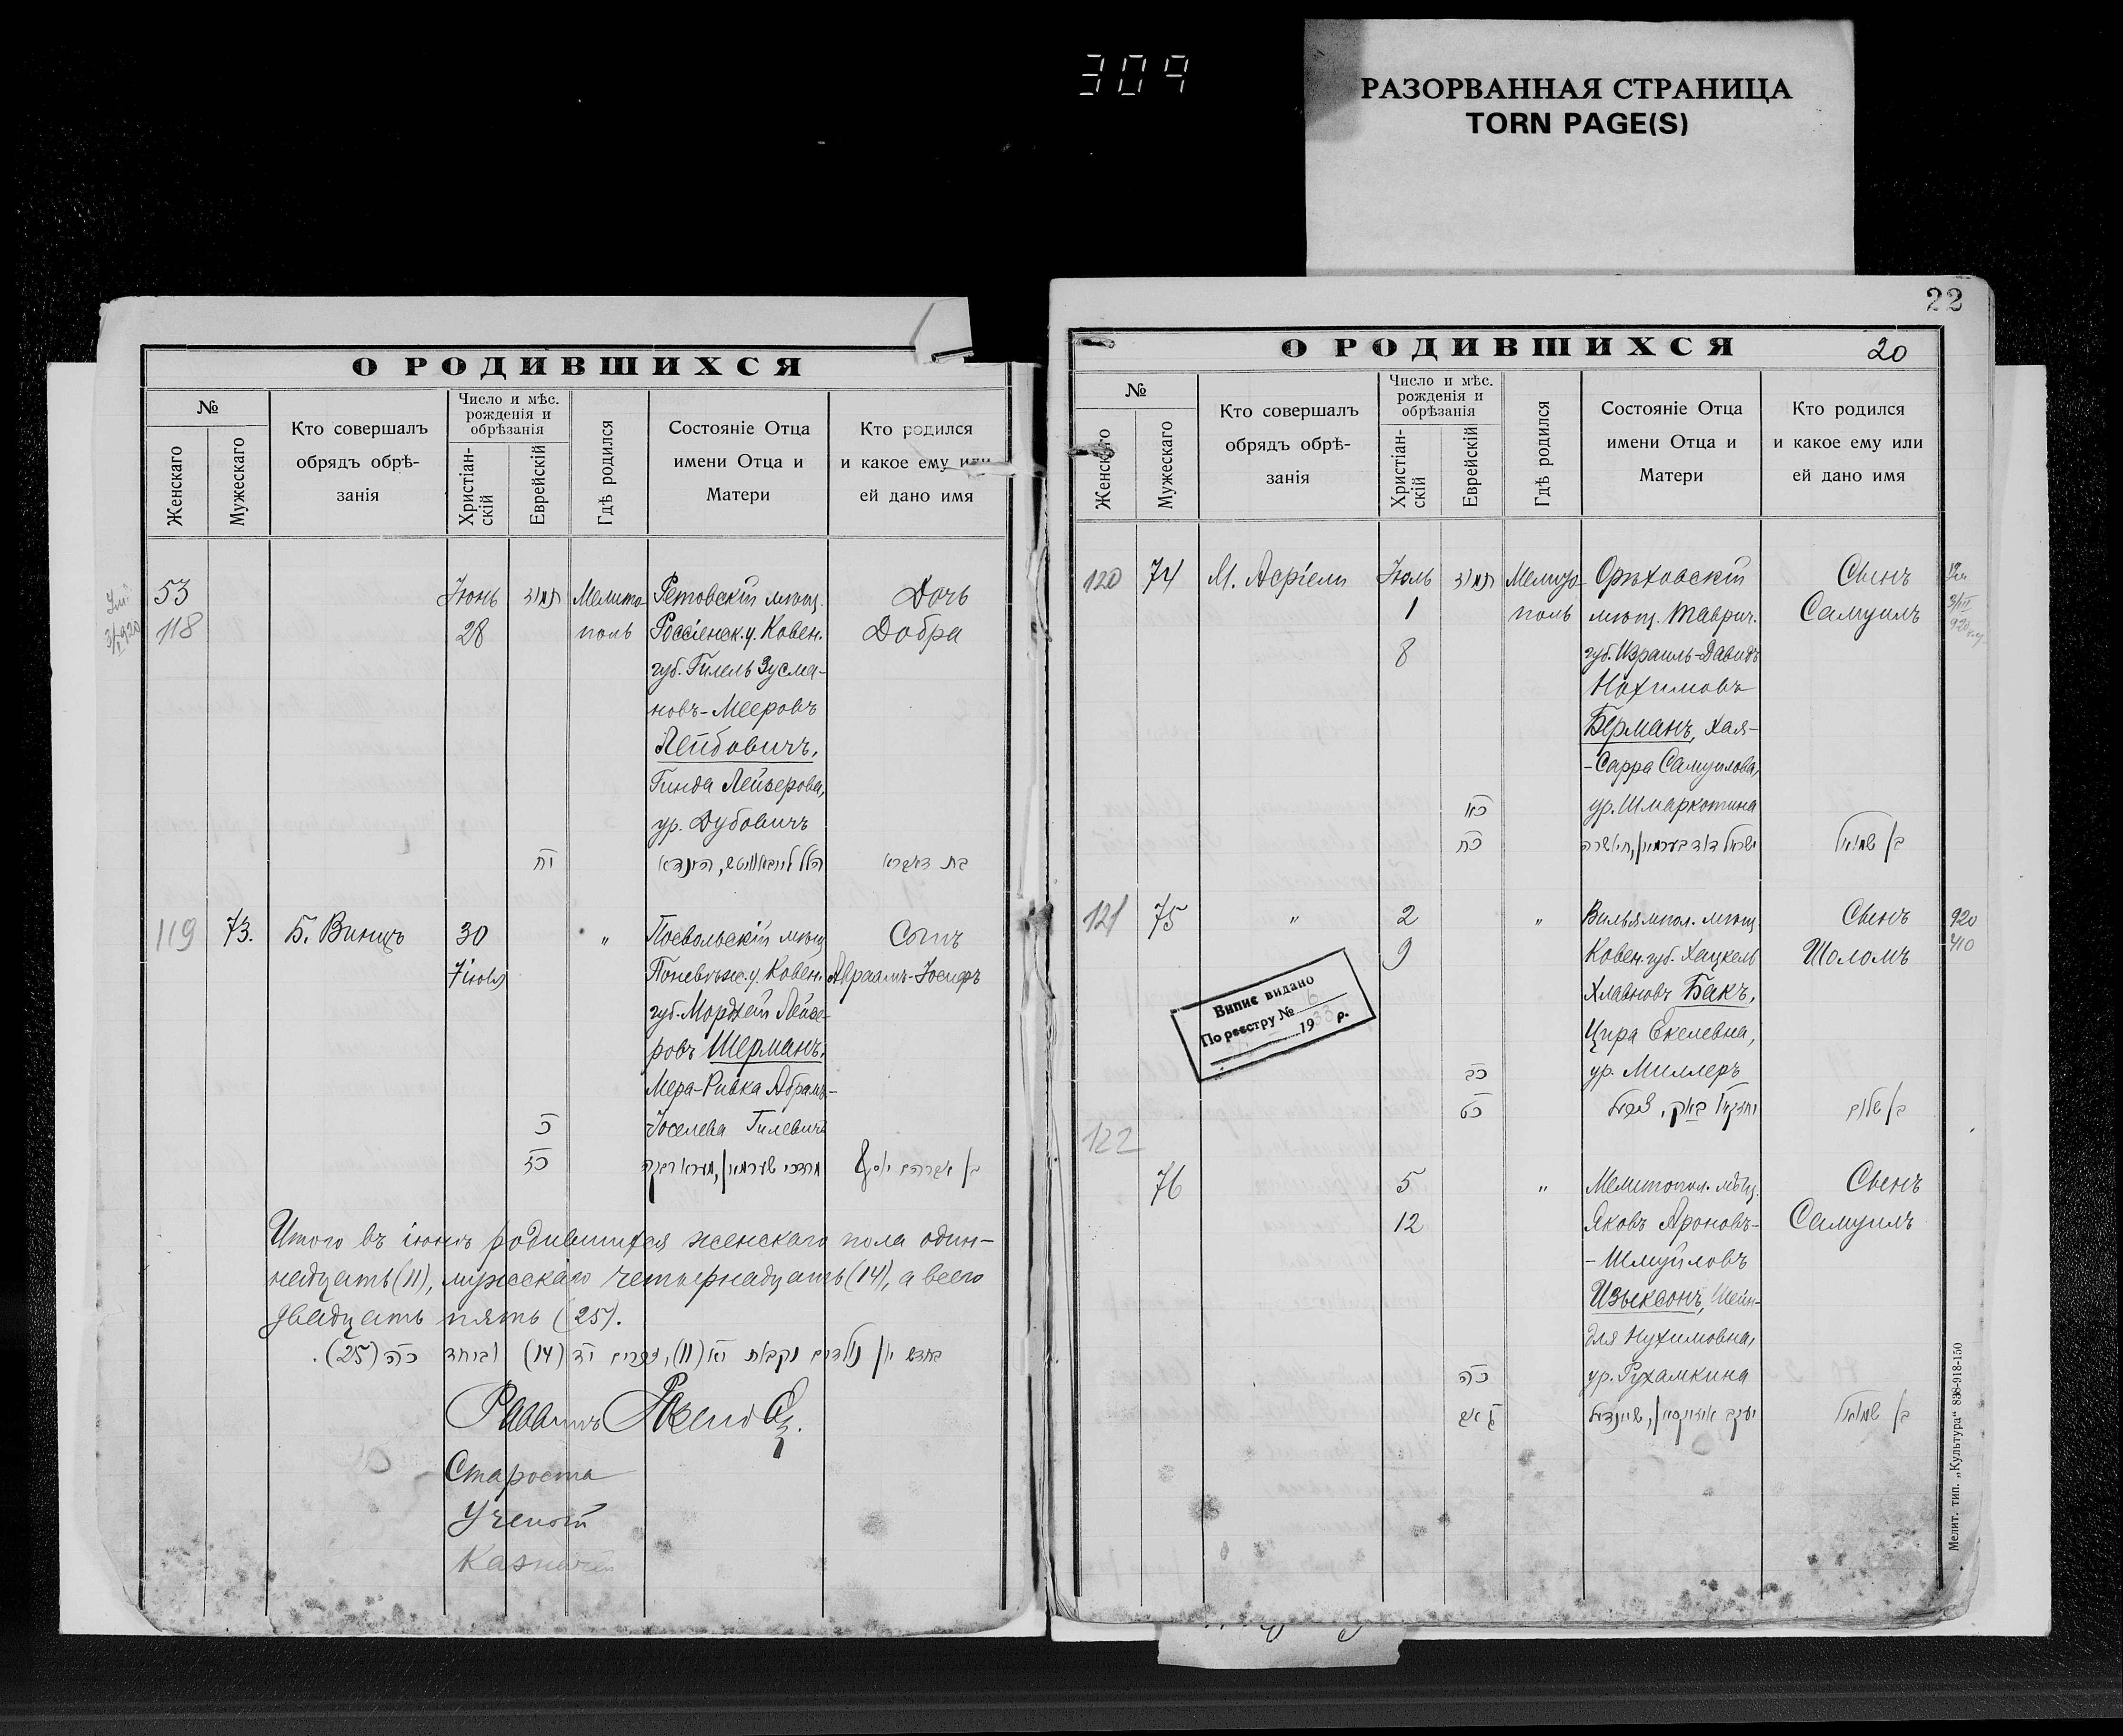 309
РАЗОРВАННАЯ СТРАНИЦА
TORN PAGE(S)
О РОДИВШИХСЯ
№
Женскаго
Мужескаго
Кто совершалъ
обрядъ обрѣ-
занія
Число и мѣс.
рожденія и
обрѣзанія
Христіан-
скій
Еврейскій
Гдѣ родился
Состояніе Отца
имени Отца и
Матери
Кто родился
и какое ему или
ей дано имя
53
118
Іюнь
28
Мелито
поль
Ретовскій мѣщ.
Россіенск. у. Ковен.
губ. Гилель Зусма-
новъ-Мееровъ
Лейбовичъ,
Гинда Лейзерова,
ур. Дубовичъ
Дочь
Добра
יח
119
73.
Б. Винцъ
30
7 іюля
"
Посвольскій мѣщ
Поневѣж. у. Ковен.
губ. Мордхей Лейзе-
ровъ Шерманъ,
Мера-Ривка Абрамъ-
Іоселева Гилевичъ
Сынъ
Авраамъ-Іосифъ
כ
כז
מרדכי שערמאן, מערא רבקה
בן אברהם יוסף
Итого въ іюнѣ родившихся женскаго пола один-
надцать (11), мужескаго четырнадцать (14), а всего
двадцать пять (25).
בחדש יון נולדים נקבות יא (11), זכרים יד (14) וביחד כה (25).
Раввинъ
Староста
Ученый
Казначей
22
О РОДИВШИХСЯ
20
№
Женскаго
Мужескаго
Кто совершалъ
обрядъ обрѣ-
занія
Число и мѣс.
рожденія и
обрѣзанія
Христіан-
скій
Еврейскій
Гдѣ родился
Состояніе Отца
имени Отца и
Матери
Кто родился
и какое ему или
ей дано имя
120
74
М. Асріели
Іюль
1
8
Мелито-
поль
Орѣховскій
мѣщ. Таврич.
губ. Израиль-Давидъ
Нохимовъ
Берманъ, Хая-
-Сарра Самуилова,
ур. Шмаркотина
Сынъ
Самуилъ
כא
כח
בן שמואל
121
75
"
2
9
"
Вильямпол. мѣщ.
Ковен. губ. Хацкель
Хлавновъ Бакъ,
Цира Екелевна,
ур. Миллеръ
Сынъ
Шоломъ
920
410
כב
כט
בן שלום
Випис видано
По реєстру № 6
1933 р.
122
76
5
12
"
Мелитопол. мѣщ.
Яковъ Ароновъ-
-Шмуйловъ
Изыксонъ, Шейн-
для Нухимовна,
ур. Рухамкина
Сынъ
Самуилъ
כה
יעקב אייזיקסאן, שיינדיל
בן שמואל
Мелит. тип. „Культура“ 838-918-150